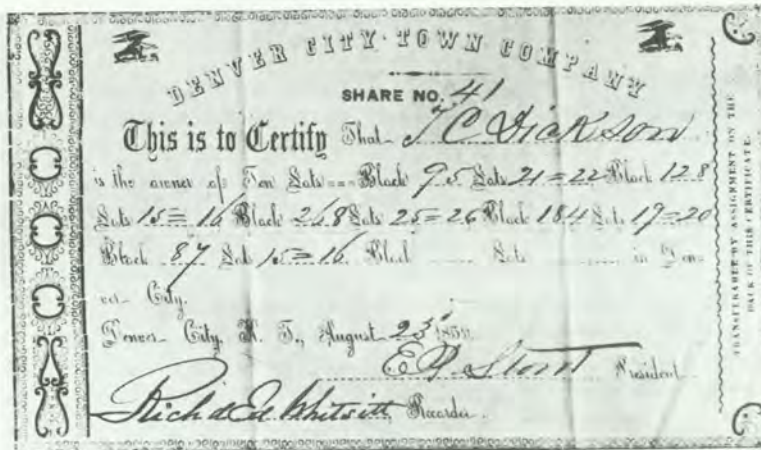 DENVER CITY TOWN COMPANY
SHARE NO. 41
This is to Certify That T C Dickson
is the owner of Ten Lots Block 95 Lots 21=22 Block 128
Lots 15=16 Block 268 Lots 25=26 Block 184 Lots 19=20
Block 87 Lot 15=16 Block Lots in Den-
ver City.
Denver City, K. T., August 23d 1859.
E P Stout President
Richd Ed. Whitsitt Recorder.
TRANSFERABLE BY ASSIGNMENT ON THE
BACK OF THIS CERTIFICATE.